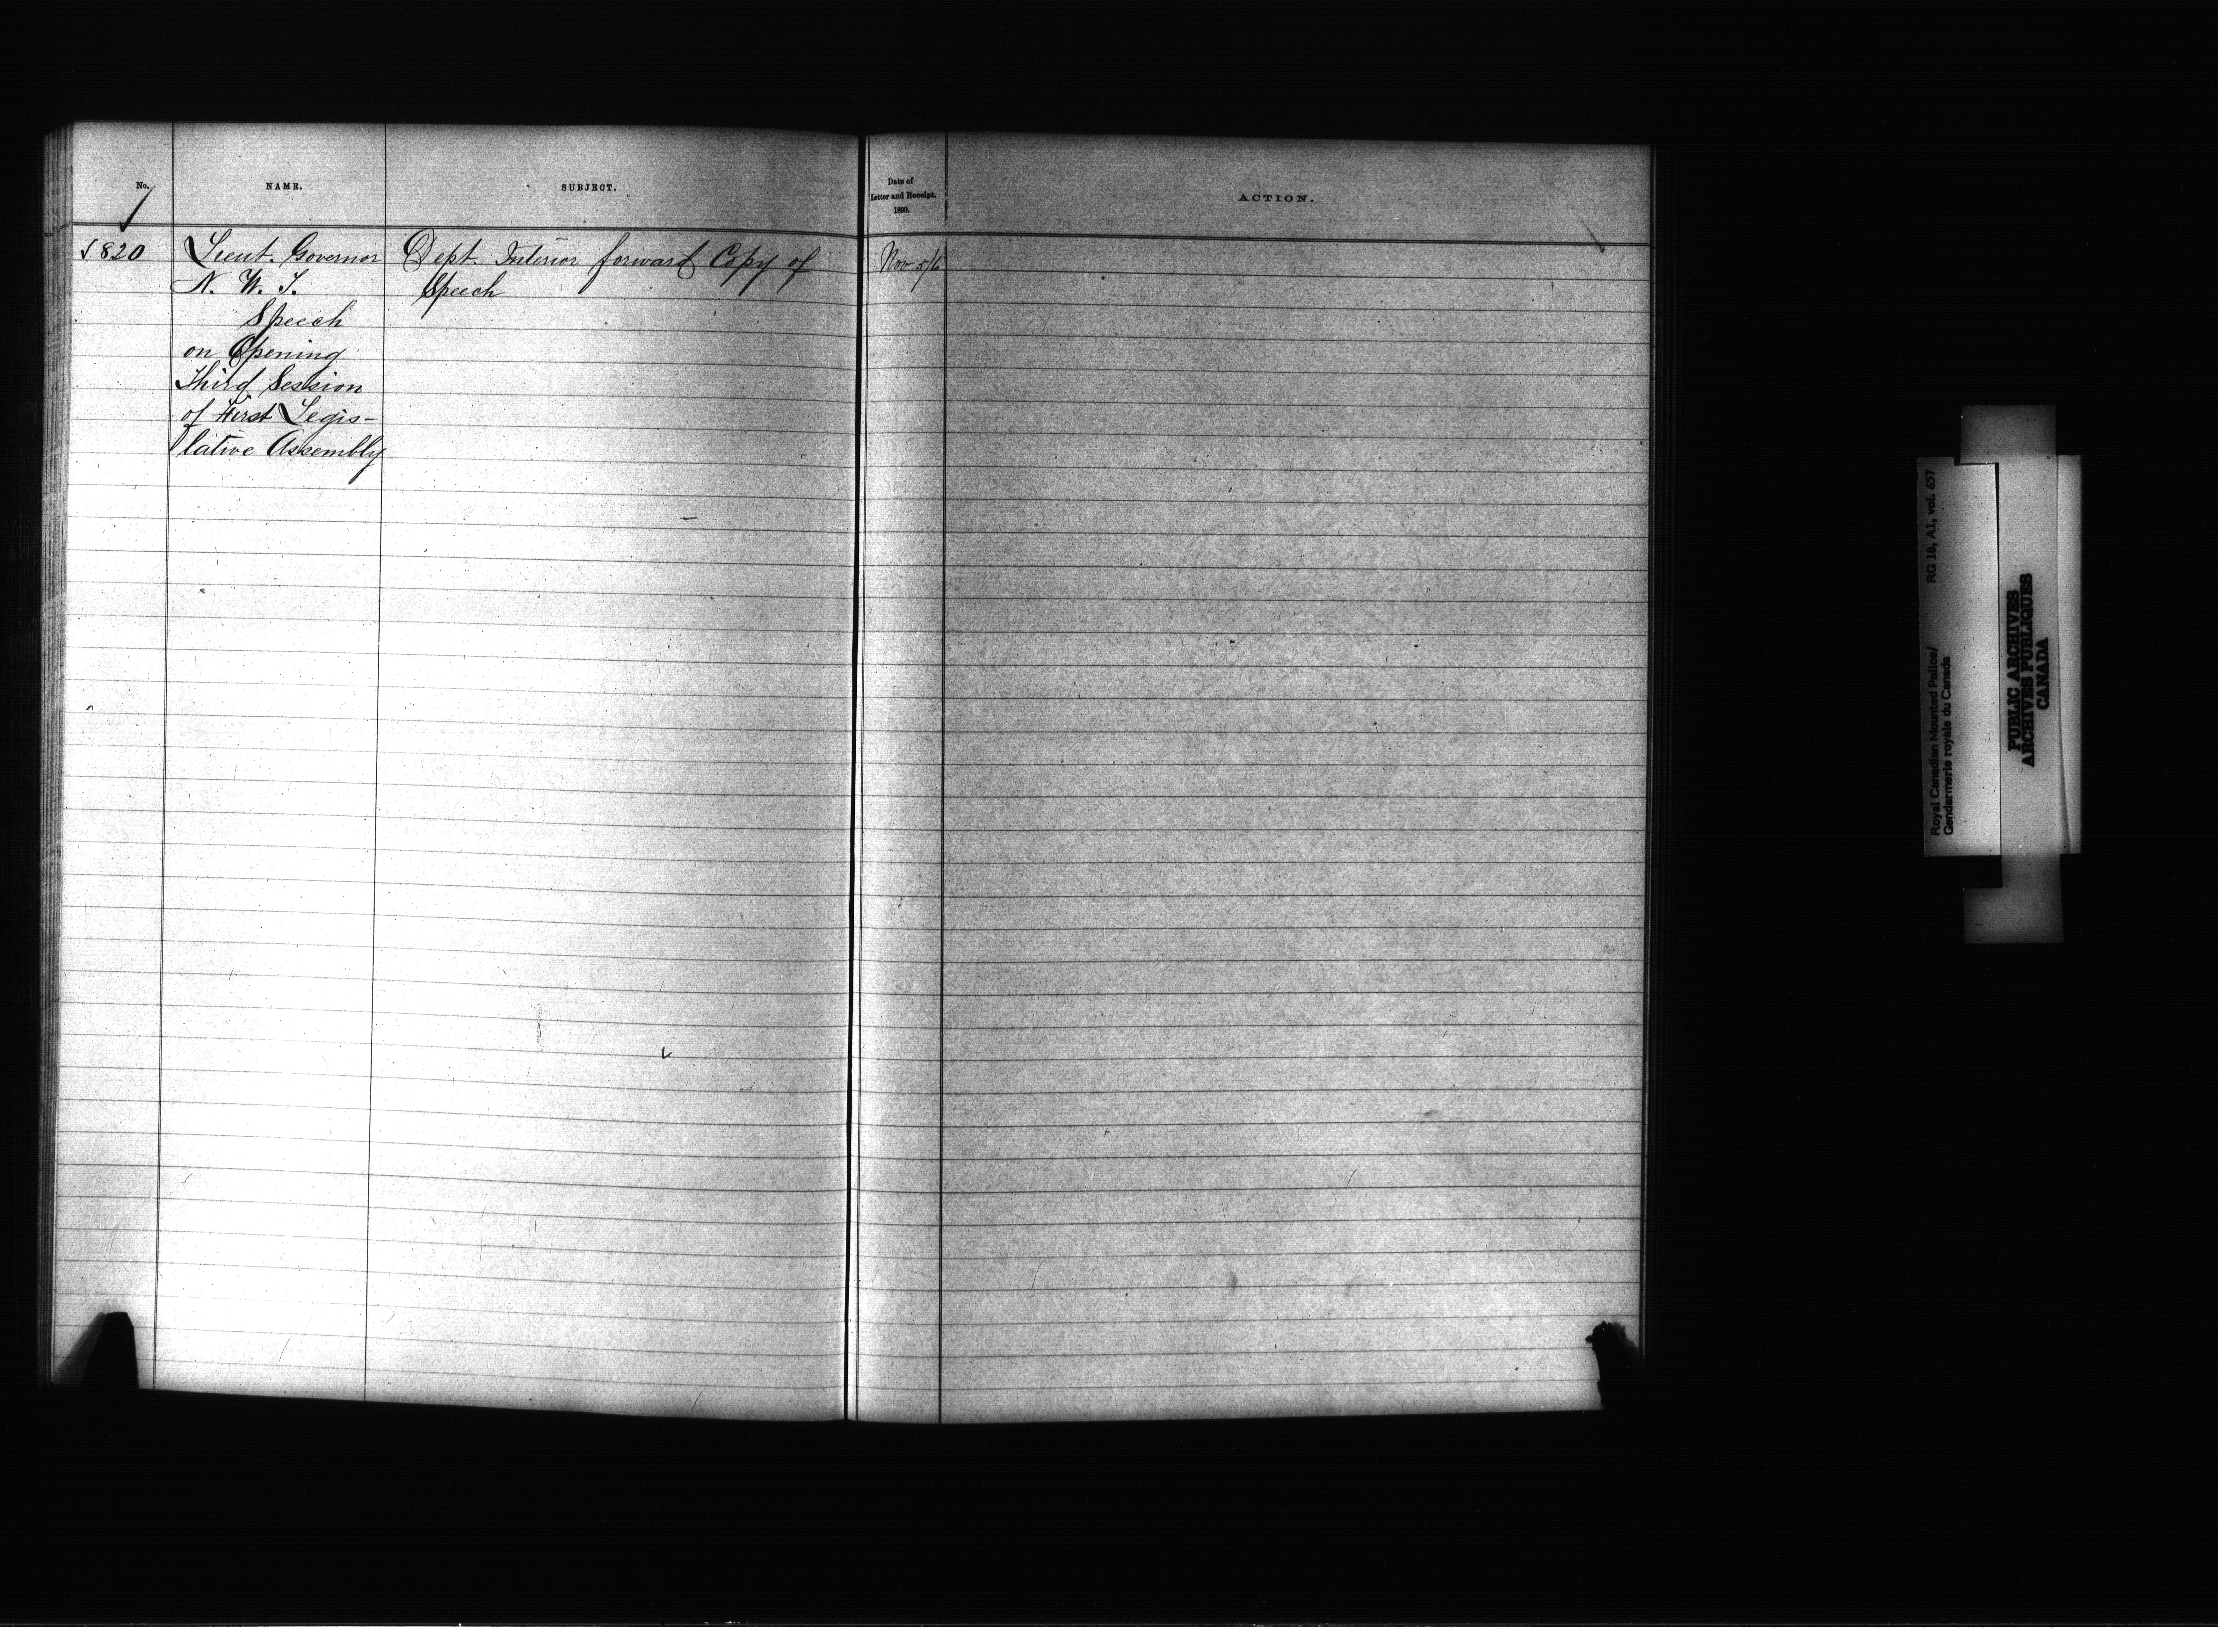 No. NAME. SUBJECT. Date of Letter and Receipt. 1890. ACTION.
820 Lieut. Governor Dept. Interior forward Copy of Nov 5/6
N. W. T. Speech
Speech
on Opening
Third Session
of First Legis-
lative Assembly
Royal Canadian Mounted Police/ RG 18, A1, vol. 657
Gendarmerie royale du Canada
PUBLIC ARCHIVES
ARCHIVES PUBLIQUES
CANADA